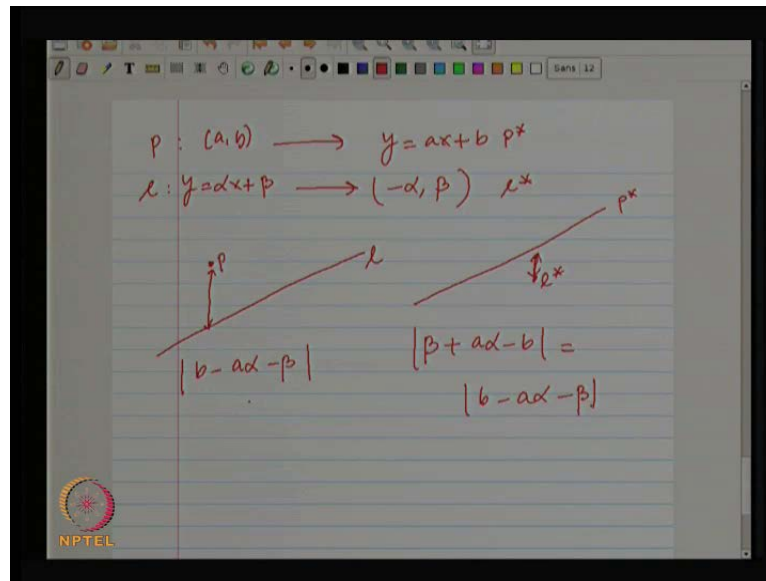 T Sans 12
p : (a, b) ⟶ y = ax + b p*
l : y = αx + β ⟶ (-α, β) l*
p l p*
l*
|b - aα - β| |β + aα - b| =
|b - aα - β|
NPTEL